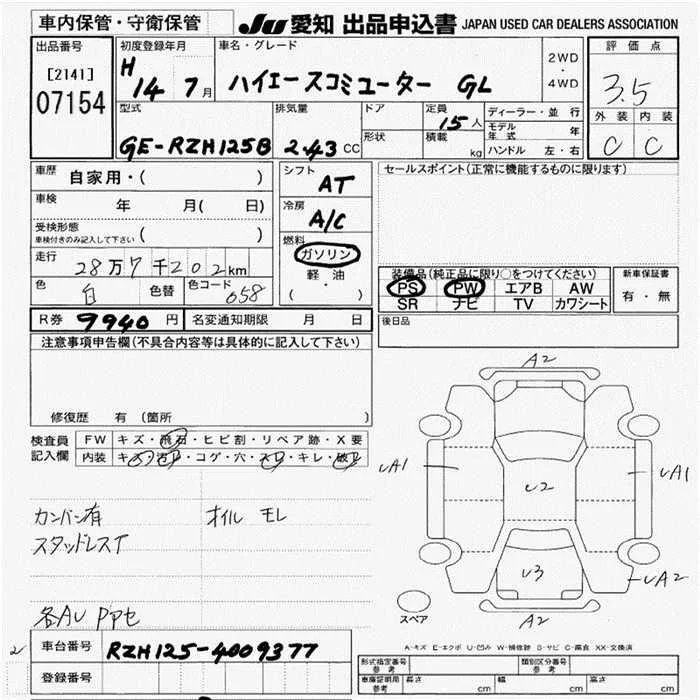 車内保管・守衛保管
JU 愛知 出品申込書 JAPAN USED CAR DEALERS ASSOCIATION
出品番号
[2141]
07154
初度登録年月
H 14 7月
車名・グレード
ハイエースコミューター GL
2WD
・
4WD
評価点
3.5
外装 内装
C C
型式
GE-RZH125B
排気量
2.43 CC
ドア
形状
定員
15人
積載
kg
ディーラー・並行
モデル年式 年
ハンドル 左・右
車歴
自家用・( )
車検
年 月( 日)
受検形態
車検付きのみ記入して下さい ( )
走行
28万7千202km
色
白
色替
色コード
058
シフト
AT
冷房
A/C
燃料
ガソリン
軽油
( ・ )
セールスポイント(正常に機能するものに限ります)
装備品(純正品に限り○をつけてください)
PS PW エアB AW
SR ナビ TV カワシート
新車保証書
有・無
R券 9940 円
名変通知期限 月 日
後日品
注意事項申告欄(不具合内容等は具体的に記入して下さい)
修復歴 有 (箇所 )
検査員
記入欄
FW キズ・飛石・ヒビ割・リペア跡・X要
内装 キズ・汚れ・コゲ・穴・スレ・キレ・破れ
カンバン有
スタッドレスT
オイル モレ
各AU PPセ
A2
UA1
U2
UA1
U3
UA2
A2
スペア
A-キズ E-エクボ U-凹み W-補修跡 S-サビ C-腐食 XX-交換済
2
車台番号
RZH125-4009377
登録番号
型式指定番号
参考
類別区分番号
参考
車庫証明用
参考
長さ cm 幅 cm 高さ cm